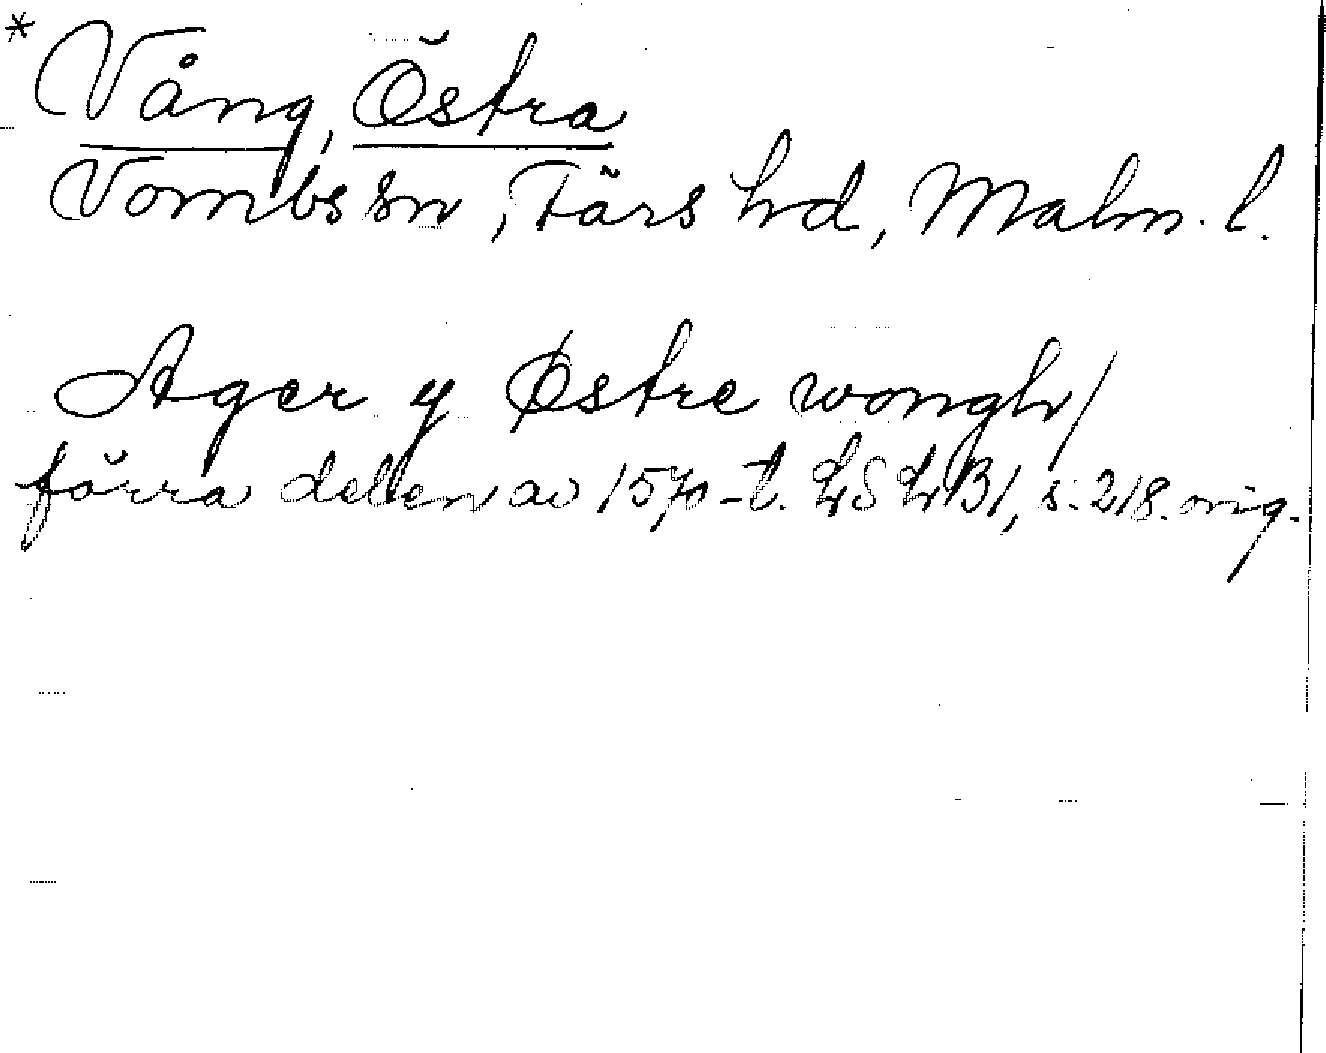 * Vång, Östra
Vombs sn, Färs hd, Malm. l.
Ager y Østre wongh/
förra delen av 1570-t. LSLB1, s. 218. orig.